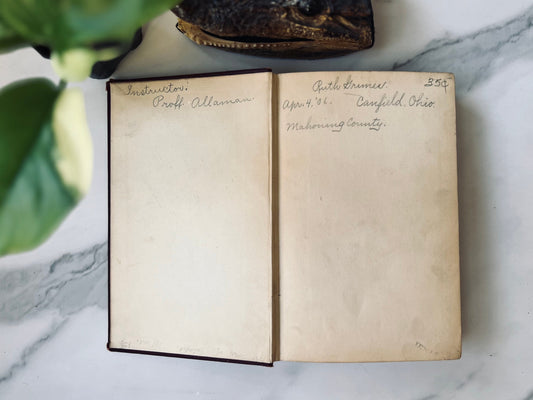 Instructor:
Proff. Allaman.
Ruth Grimes. 35¢
Apr. 4, '06. Canfield. Ohio.
Mahoning County.